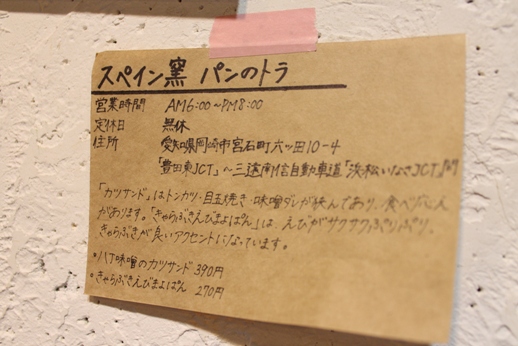 スペイン窯 パンのトラ
営業時間 AM6:00~PM8:00
定休日 無休
住所 愛知県岡崎市宮石町六ッ田10-4
「豊田東JCT」~三遠南信自動車道「浜松いなさJCT」間
「カツサンド」はトンカツ・目玉焼き・味噌ダレが挟んであり、食べごたえ
があります。「きゃらぶきえびまよぱん」は、えびがサクサクぷりぷり、
きゃらぶきが良いアクセントになっています。
*八丁味噌のカツサンド 390円
*きゃらぶきえびまよぱん 270円